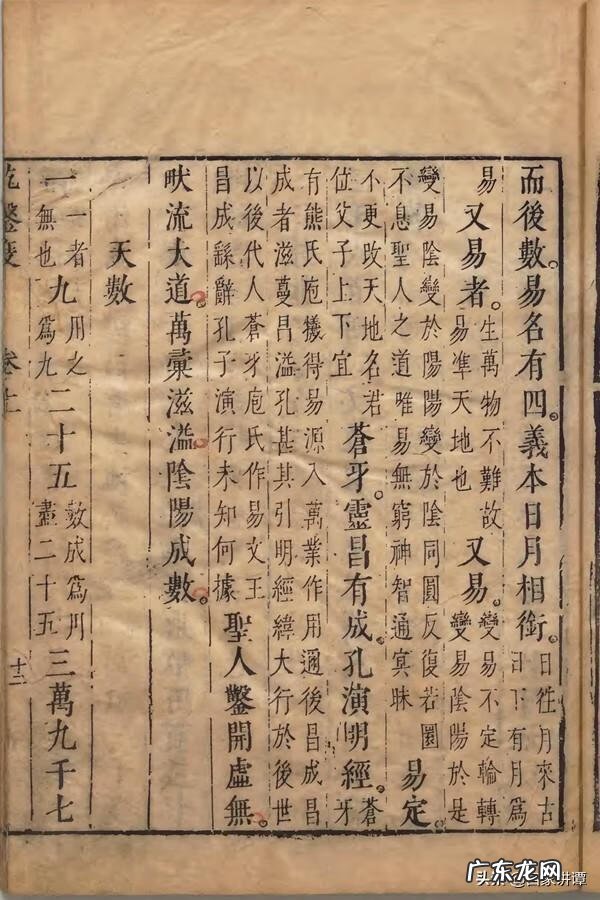 而後數易名有四義本日月相銜。日往月來古日下有月為
易又易者。生萬物不難故易準天地也又易。變易不定輪轉變易陰陽於是
變易陰變於陽陽變於陰同圓反復若圜不息聖人之道唯易無窮神智通冥昧易定。
不更改天地名君位父子上下宜蒼牙。靈昌有成。孔演明經。蒼牙
有熊氏庖犧得易源入萬業作用邇後昌成昌成者滋蔓昌溢孔甚其引明經緯大行於後世
以後代人蒼牙庖氏作易文王昌成繇辭孔子演行未知何據聖人鑿開虛無。
畎流大道。萬彙滋溢。陰陽成數。
天數
一一者無也九用之為九二十五數成為用盡二十五三萬九千七
乾鑿度 卷上 十二
广东龙网
头条@百家讲谭